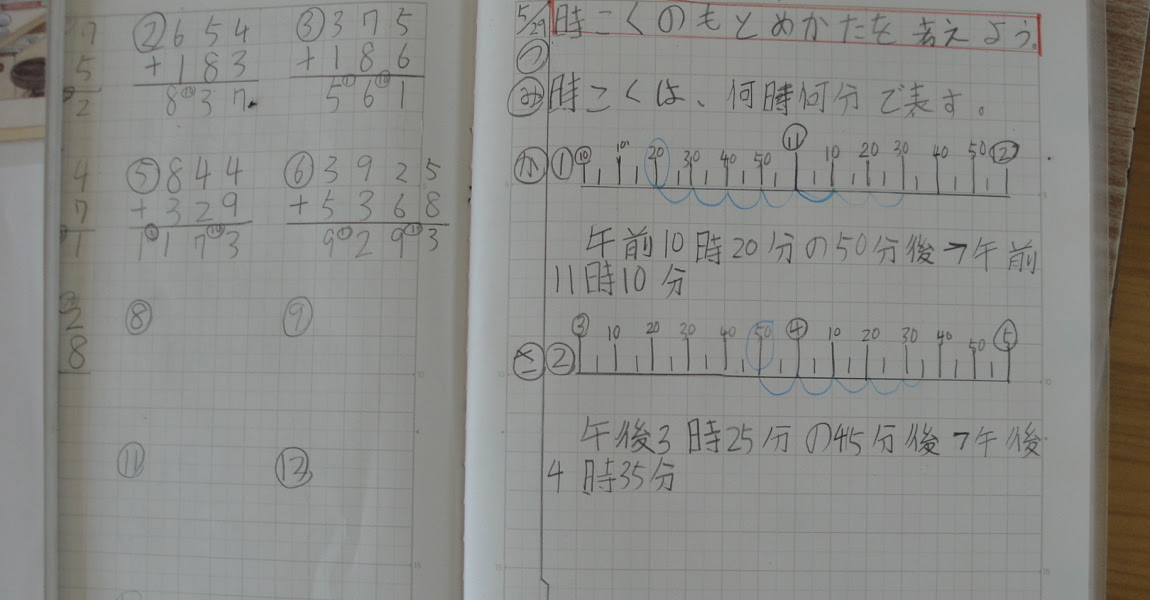 ② 654 ③ 375
+183 +186
837 561
4 ⑤ 844 ⑥ 3925
7 +329 +5368
1 1173 9293
2 ⑧ ⑨
8
⑪ ⑫
5/29 時こくのもとめかたを考えよう。
つ
み 時こくは、何時何分で表す。
か ① ⑩ 10 20 30 40 50 ⑪ 10 20 30 40 50 ⑫
午前10時20分の50分後→午前
11時10分
② ③ 10 20 30 40 50 ④ 10 20 30 40 50 ⑤
午後3時25分の45分後→午後
4時35分